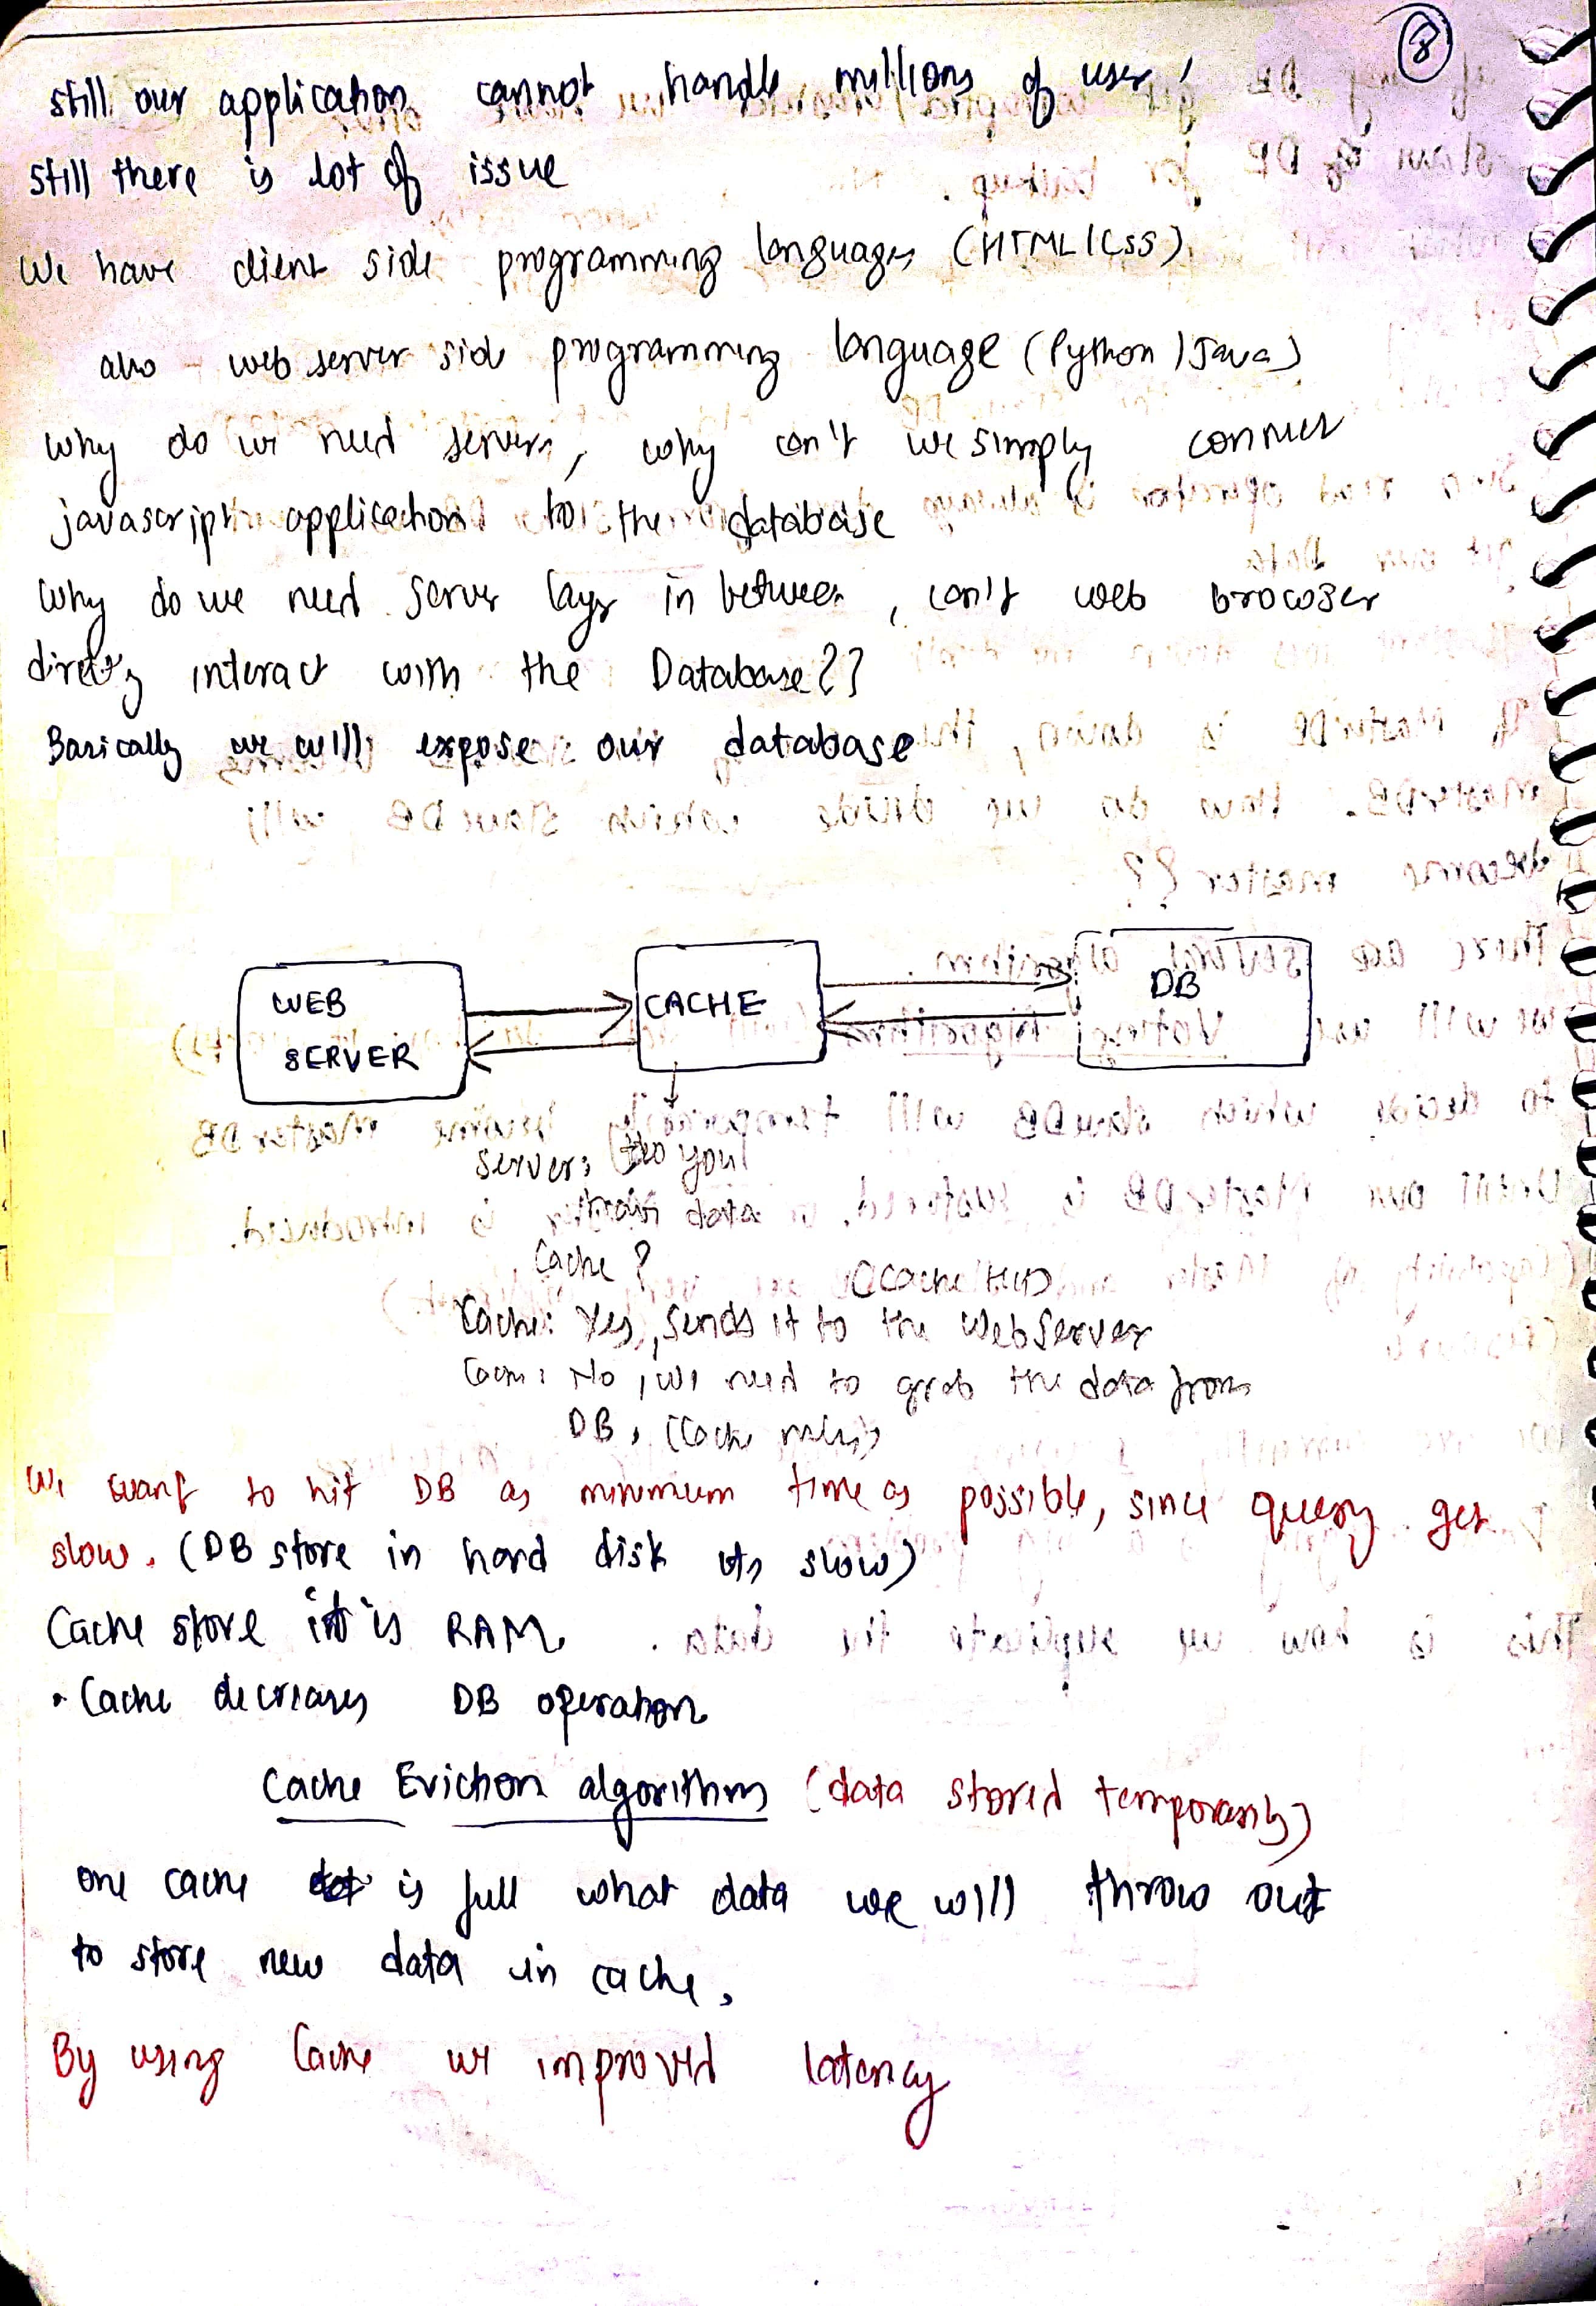 8
still our application cannot handle millions of user,
still there is lot of issue
we have client side programming languages (HTML/CSS)
also web server side programming language (Python/Java)
why do we need servers, why can't we simply connect
javascript application to the database
why do we need server layer in between, can't web browser
directly interact with the Database??
Basically we will expose our database
WEB SERVER
CACHE
DB
server: do you
have data
Cache?
(cache Hit)
Cache: Yes, sends it to the WebServer
Cache: No, we need to grab the data from
DB. (Cache miss)
We want to hit DB as minimum time as possible, since query get
slow. (DB store in hard disk its slow)
Cache store it is RAM.
• Cache decreases DB operation
Cache Eviction algorithm (data stored temporarily)
one cache is full what data we will throw out
to store new data in cache.
By using Cache we improved latency